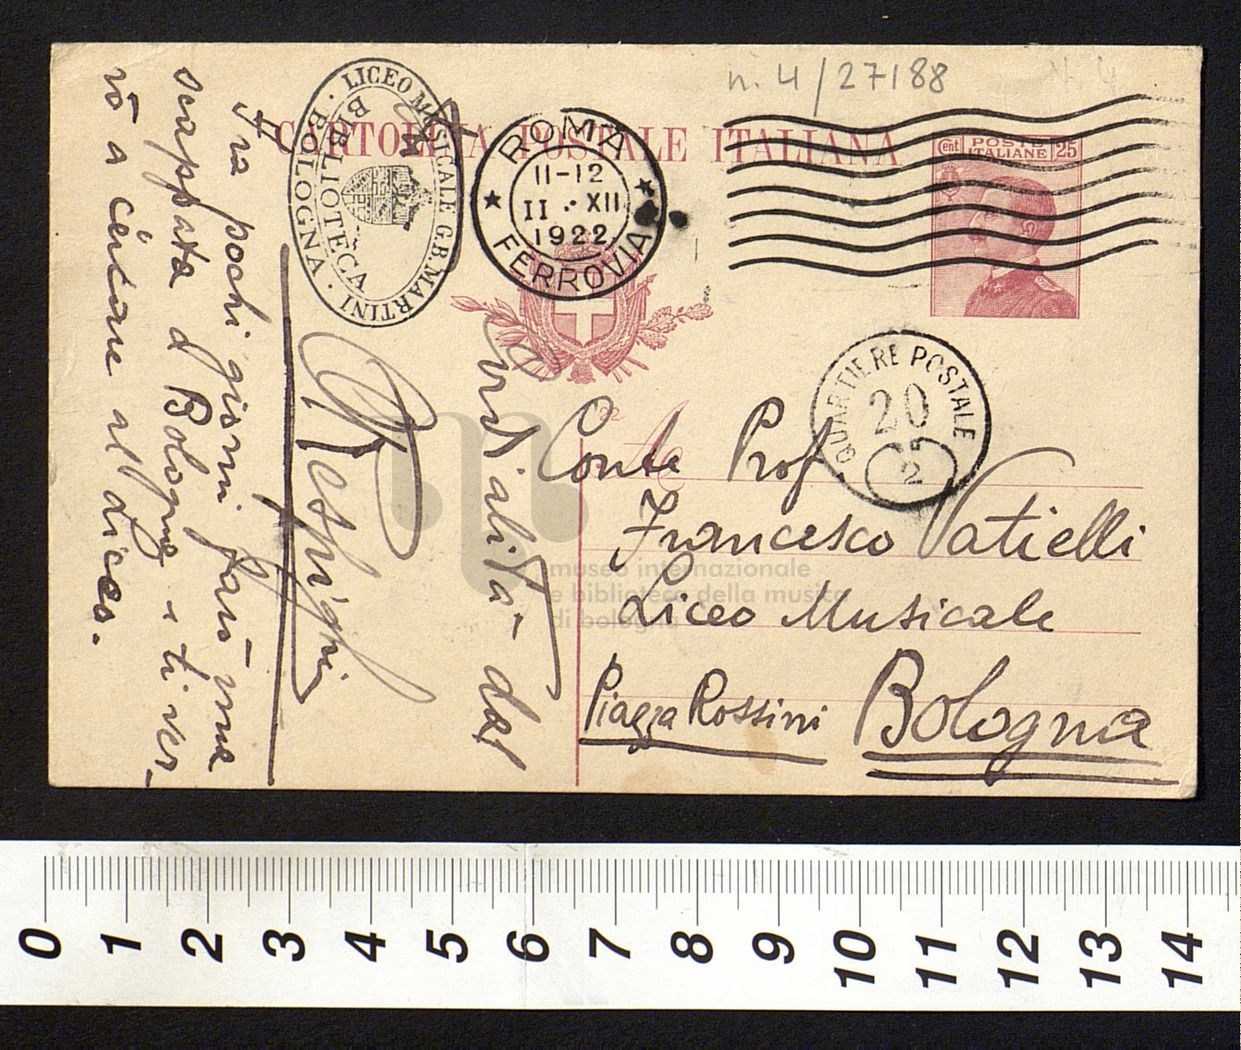 n. 4/27188
CARTOLINA POSTALE ITALIANA
LICEO MUSICALE G.B. MARTINI · BOLOGNA ·
BIBLIOTECA
ROMA
11-12
11 · XII
1922
FERROVIA
POSTE
ITALIANE
Cent 25
QUARTIERE POSTALE
20
2
22
Conte Prof
Francesco Vatielli
Liceo Musicale
Piazza Rossini Bologna
Cordialità dal
Respighi
Fra pochi giorni farò una
scappata a Bologna e ti ver-
rò a cercare al Liceo.
museo internazionale
e biblioteca della musica
di bologna
0 1 2 3 4 5 6 7 8 9 10 11 12 13 14